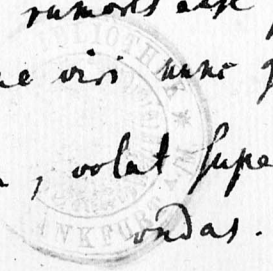 rumores esse
viri nunc
, volat supe
ondas.
BIBLIOTHEK
ANKFURT